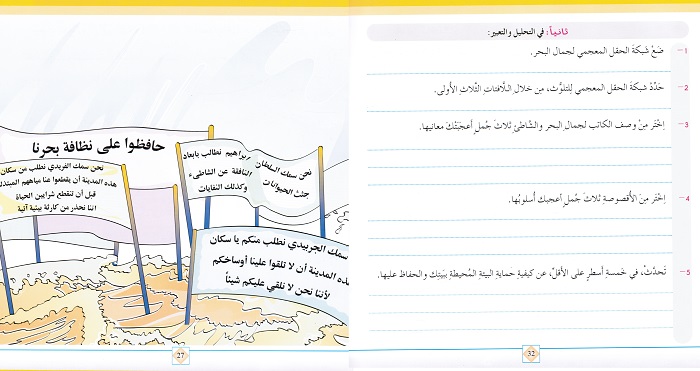 ثانياً: في التحليل والتعبير:
1- ضَعْ شبكةَ الحقل المعجمي لجمال البحر.
2- حَدِّدْ شبكةَ الحقل المعجمي لِلتلوُّث، مِن خلال اللّافتات الثَّلاث الأُولى.
3- اِختَر مِنْ وصف الكاتب لجمال البحر والشاطئ ثلاثَ جُملٍ أعجبَتْكَ معانيها.
4- اِختَر مِنَ الأُقصوصةِ ثلاثَ جُملٍ أعجبك أُسلوبُها.
5- تَحدَّثْ، في خمسةِ أسطرٍ على الأقلّ، عن كيفيةِ حمايةِ البيئةِ المُحيطةِ ببَيتِك والحفاظ عليها.
32
حافظوا على نظافة بحرنا
نحن سمك السلطان
جثث الحيوانات
ابراهيم نطالب بابعاد
النافقة عن الشاطىء
وكذلك النفايات
نحن سمك الفريدي نطلب من سكان
هذه المدينة أن يقطعوا عنا مياههم
قبل أن تنقطع شرايين الحياة
اننا نحذر من كارثة بيئية آتية
سمك الجربيدي نطلب منكم يا سكان
هذه المدينة أن لا تلقوا علينا أوساخكم
لأننا نحن لا نلقي عليكم شيئاً
27